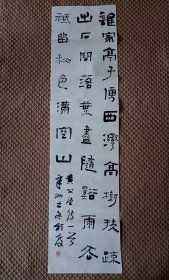 誰家亭子傍西灣高樹扶疎
出石間落葉盡隨谿雨去
祗留秋色滿空山
黃公望詩一首